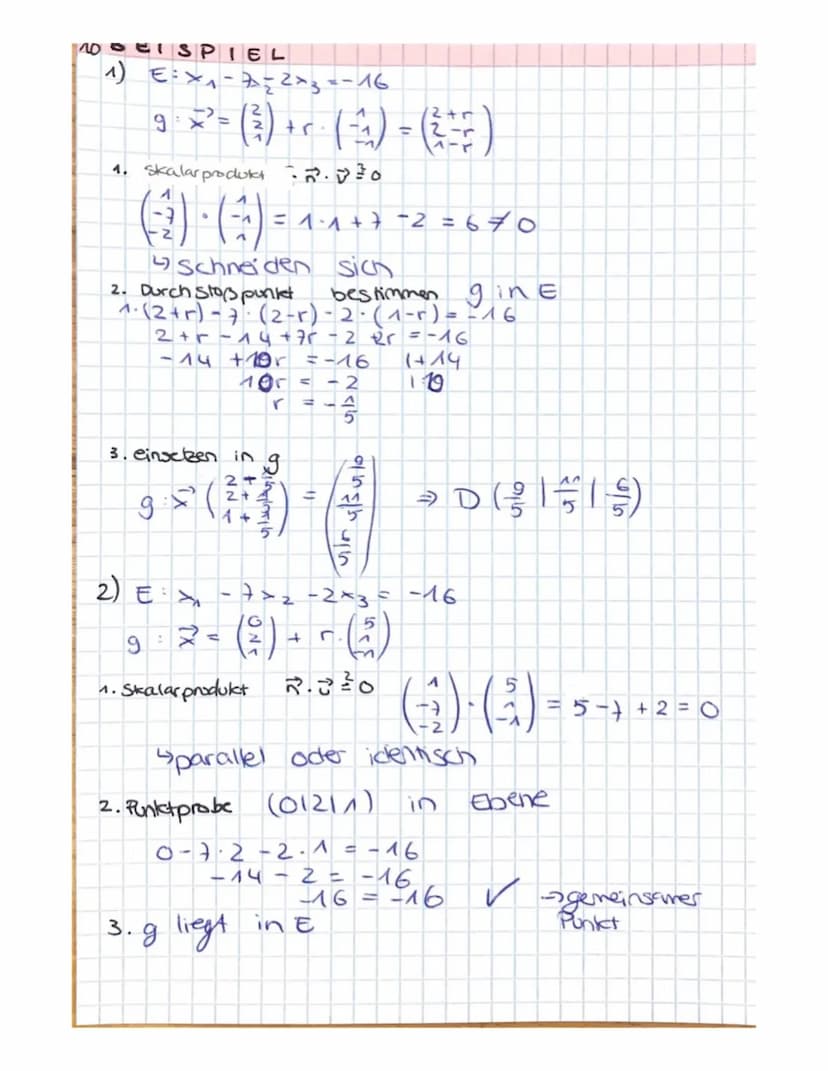 10 BEISPIEL
1) E: x₁ - 7x₂ - 2x₃ = -16
g: x⃗ = (2 2 1) + r · (1 -1 -1) = (2+r 2-r 1-r)
1. Skalarprodukt : n⃗ · v⃗ ≟ 0
(1 -7 -2) · (1 -1 1) = 1·1 + 7 - 2 = 6 ≠ 0
↳ schneiden sich
2. Durchstoßpunkt bestimmen g in E
1·(2+r) - 7·(2-r) - 2·(1-r) = -16
2 + r - 14 + 7r - 2 + 2r = -16
-14 + 10r = -16 |+14
10r = -2 |:10
r = -1/5
3. einsetzen in g
g: x⃗ = (9/5 11/5 6/5) ⇒ D (9/5 | 11/5 | 6/5)
2) E: x₁ - 7x₂ - 2x₃ = -16
g: x⃗ = (0 2 1) + r · (5 1 -1)
1. Skalarprodukt n⃗ · v⃗ ≟ 0 (1 -7 -2) · (5 1 -1) = 5 - 7 + 2 = 0
↳ parallel oder identisch
2. Punktprobe (0|2|1) in Ebene
0 - 7·2 - 2·1 = -16
-14 - 2 = -16
-16 = -16 ✓ → gemeinsamer
Punkt
3. g liegt in E